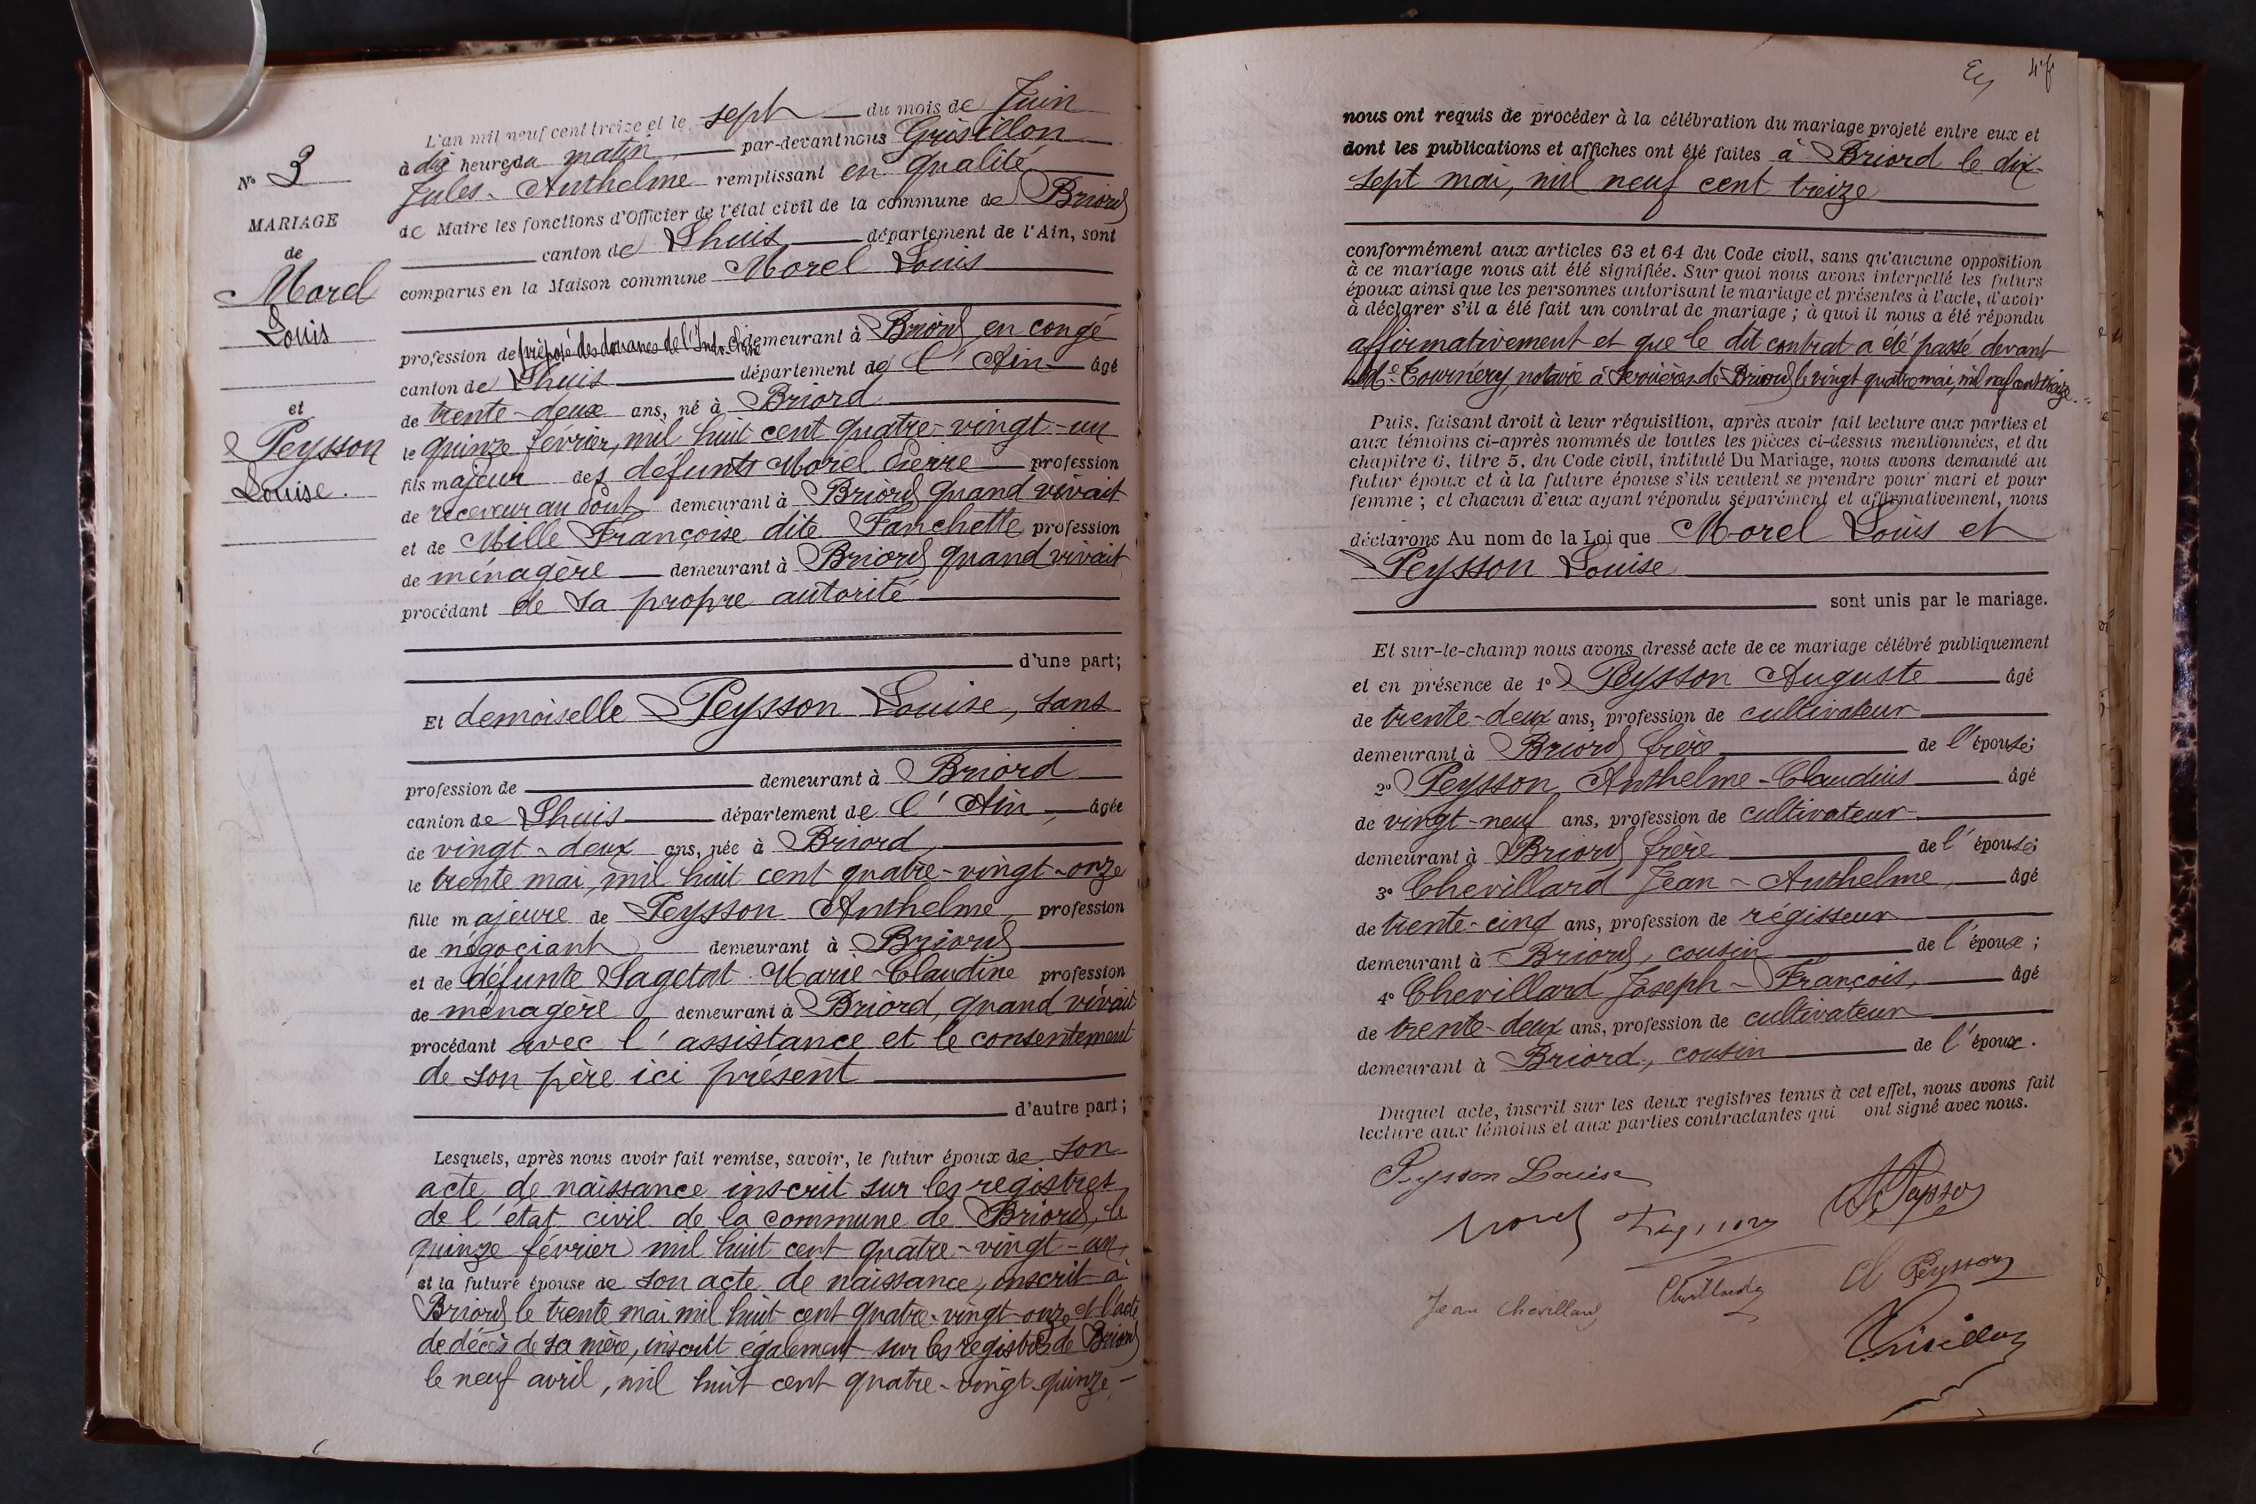 N° 3
MARIAGE
de
Morel
Louis
et
Peysson
Louise.
L'an mil neuf cent treize et le sept du mois de Juin
à dix heures du matin par-devant nous Grisillon
Jules-Anthelme remplissant en qualité
de Maire les fonctions d'Officier de l'état civil de la commune de Briord
canton de Lhuis département de l'Ain, sont
comparus en la Maison commune Morel Louis
profession de préposé des douanes de l'Indo-Chine demeurant à Briord en congé
canton de Lhuis département de l'Ain âgé
de trente-deux ans, né à Briord
le quinze février, mil huit cent quatre-vingt-un
fils majeur des défunts Morel Pierre profession
de receveur au pont demeurant à Briord quand vivait
et de Mille Françoise dite Fanchette profession
de ménagère demeurant à Briord quand vivait
procédant de sa propre autorité
d'une part;
Et demoiselle Peysson Louise, sans
profession de demeurant à Briord
canton de Lhuis département de l'Ain, âgée
de vingt-deux ans, née à Briord,
le trente mai, mil huit cent quatre-vingt-onze
fille majeure de Peysson Anthelme profession
de négociant demeurant à Briord
et de défunte Sagetat Marie-Claudine profession
de ménagère demeurant à Briord, quand vivait
procédant avec l'assistance et le consentement
de son père ici présent
d'autre part;
Lesquels, après nous avoir fait remise, savoir, le futur époux de son
acte de naissance inscrit sur les registres
de l'état civil de la commune de Briord, le
quinze février mil huit cent quatre-vingt-un,
et la future épouse de son acte de naissance, inscrit à
Briord le trente mai mil huit cent quatre-vingt-onze et l'acte
de décès de sa mère, inscrit également sur les registres de Briord
le neuf avril, mil huit cent quatre-vingt-quinze,-
nous ont requis de procéder à la célébration du mariage projeté entre eux et
dont les publications et affiches ont été faites à Briord le dix-
sept mai, mil neuf cent treize
conformément aux articles 63 et 64 du Code civil, sans qu'aucune opposition
à ce mariage nous ait été signifiée. Sur quoi nous avons interpellé les futurs
époux ainsi que les personnes autorisant le mariage et présentes à l'acte, d'avoir
à déclarer s'il a été fait un contrat de mariage; à quoi il nous a été répondu
affirmativement et que le dit contrat a été passé devant
Me Tournery, notaire à Serrières-de-Briord, le vingt quatre mai, mil neuf cent treize.
Puis, faisant droit à leur réquisition, après avoir fait lecture aux parties et
aux témoins ci-après nommés de toutes les pièces ci-dessus mentionnées, et du
chapitre 6, titre 5, du Code civil, intitulé Du Mariage, nous avons demandé au
futur époux et à la future épouse s'ils veulent se prendre pour mari et pour
femme; et chacun d'eux ayant répondu séparément et affirmativement, nous
déclarons Au nom de la Loi que Morel Louis et
Peysson Louise
sont unis par le mariage.
Et sur-le-champ nous avons dressé acte de ce mariage célébré publiquement
et en présence de 1° Peysson Auguste âgé
de trente-deux ans, profession de cultivateur
demeurant à Briord frère de l'épouse;
2° Peysson Anthelme-Claudius âgé
de vingt-neuf ans, profession de cultivateur
demeurant à Briord frère de l'épouse;
3° Chevillard Jean-Anthelme, âgé
de trente-cinq ans, profession de régisseur
demeurant à Briord, cousin de l'époux;
4° Chevillard Joseph-François, âgé
de trente-deux ans, profession de cultivateur
demeurant à Briord, cousin de l'époux.
Duquel acte, inscrit sur les deux registres tenus à cet effet, nous avons fait
lecture aux témoins et aux parties contractantes qui ont signé avec nous.
Peysson Louise
Morel Peysson
Jean Chevillard Chevillard Cl Peysson
Grisillon